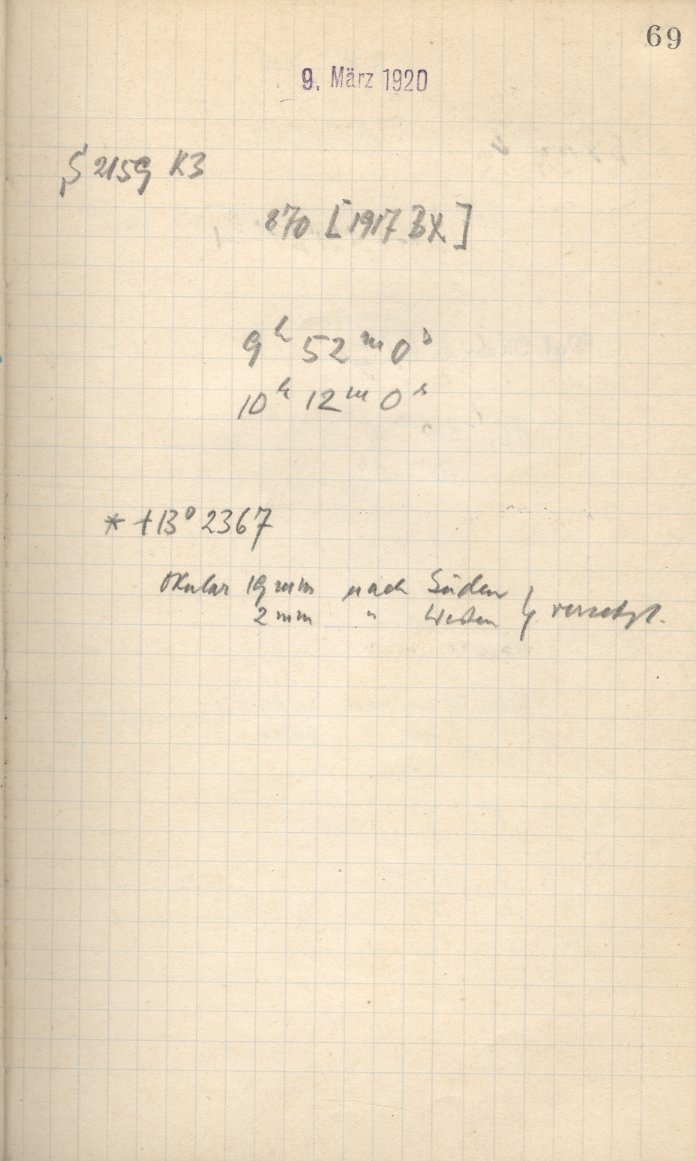 69
9. März 1920
S 2159 K3
870 [1917 BX]
9ʰ 52ᵐ 0ˢ
10ʰ 12ᵐ 0ˢ
* +13° 2367
Okular 19 mm nach Süden } versetzt.
2 mm " Westen